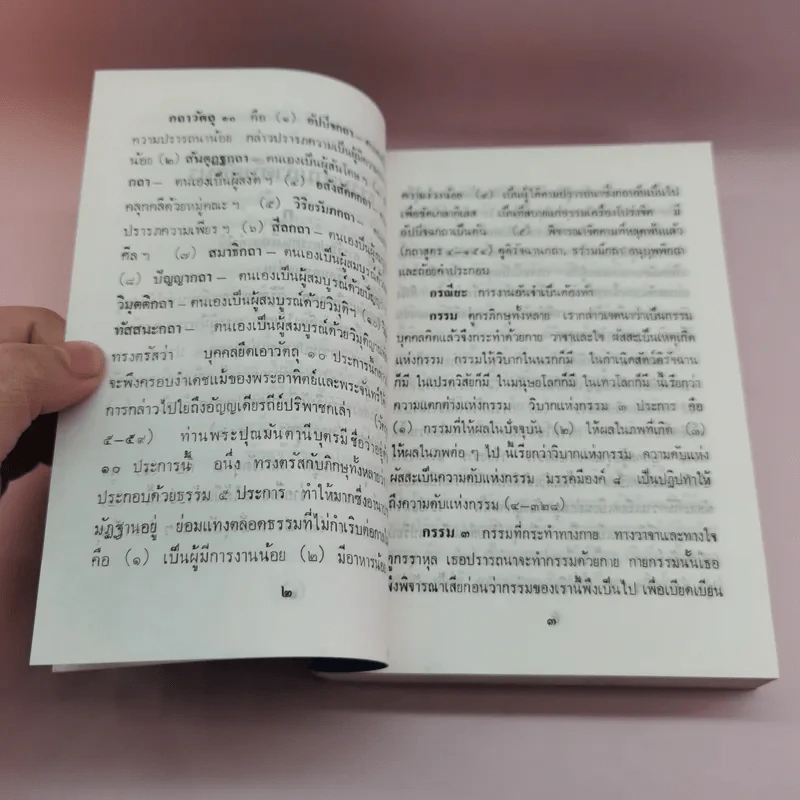 กถาวัตถุ ๑๐ คือ (๑) อัปปิจกถา –
ความปรารถนาน้อย กล่าวปรารภความเป็นผู้มีความ
น้อย (๒) สันตุฏฐกถา – ตนเองเป็นผู้สันโดษ ฯ
กถา – ตนเองเป็นผู้สงัด ฯ (๔) อสังสัคคกถา –
คลุกคลีด้วยหมู่คณะ ฯ (๕) วิริยรัมภกถา –
ปรารภความเพียร ฯ (๖) สีลกถา – ตนเองเป็นผู้
ศีล ฯ (๗) สมาธิกถา – ตนเองเป็นผู้สมบูรณ์ด้วย
(๘) ปัญญากถา – ตนเองเป็นผู้สมบูรณ์ด้วย
วิมุตติกถา – ตนเองเป็นผู้สมบูรณ์ด้วยวิมุติ ฯ
ทัสสนะกถา – ตนเองเป็นผู้สมบูรณ์ด้วยวิมุติ
ทรงตรัสว่า บุคคลยึดเอาวัตถุ ๑๐ ประการนี้กล่าว
จะพึงครอบงำเดชแม้ของพระอาทิตย์และพระจันทร์
การกล่าวไปใยถึงอัญญเดียรถีย์ปริพาชกเล่า
๕–๕๙) ท่านพระปุณมันตานีบุตรมีชื่อว่าอยู่
๑๐ ประการนี้ อนึ่ง ทรงตรัสกับภิกษุทั้งหลายว่า
ประกอบด้วยธรรม ๕ ประการ ทำให้มากซึ่ง
มัฏฐานอยู่ ย่อมแทงตลอดธรรมที่ไม่กำเริบต่อ
คือ (๑) เป็นผู้มีการงานน้อย (๒) มีอาหารน้อย
๒
ความง่วงน้อย (๔) เป็นผู้ได้ตามปรารถนาซึ่งกถาอันเป็นไป
เพื่อขัดเกลากิเลส เป็นที่สบายแก่ธรรมเครื่องโปร่งจิต มี
อัปปิจฉกถาเป็นต้น (๕) พิจารณาจิตตามที่หลุดพ้นแล้ว
(กถาสูตร ๔–๑๕๔) ดูติรัจฉานกถา, รวามนึกถา อนุบุพพิกถา
และถ้อยคำประกอบ
กรณียะ การงานอันจำเป็นต้องทำ
กรรม ดูกรภิกษุทั้งหลาย เรากล่าวเจตนาว่าเป็นกรรม
บุคคลคิดแล้วจึงกระทำด้วยกาย วาจาและใจ ผัสสะเป็นเหตุเกิด
แห่งกรรม กรรมให้วิบากในนรกก็มี ในกำเนิดสัตว์ดิรัจฉาน
ก็มี ในเปรตวิสัยก็มี ในมนุษยโลกก็มี ในเทวโลกก็มี นี้เรียกว่า
ความแตกต่างแห่งกรรม วิบากแห่งกรรม ๓ ประการ คือ
(๑) กรรมที่ให้ผลในปัจจุบัน (๒) ให้ผลในภพที่เกิด (๓)
ให้ผลในภพต่อ ๆ ไป นี้เรียกว่าวิบากแห่งกรรม ความดับแห่ง
ผัสสะเป็นความดับแห่งกรรม มรรคมีองค์ ๘ เป็นปฏิปทาให้
ถึงความดับแห่งกรรม (๔–๓๒๘)
กรรม ๓ กรรมที่กระทำทางกาย ทางวาจาและทางใจ
ดูกรราหุล เธอปรารถนาจะทำกรรมด้วยกาย กายกรรมนั้นเธอ
พึงพิจารณาเสียก่อนว่ากรรมของเรานี้พึงเป็นไป เพื่อเบียดเบียน
๓